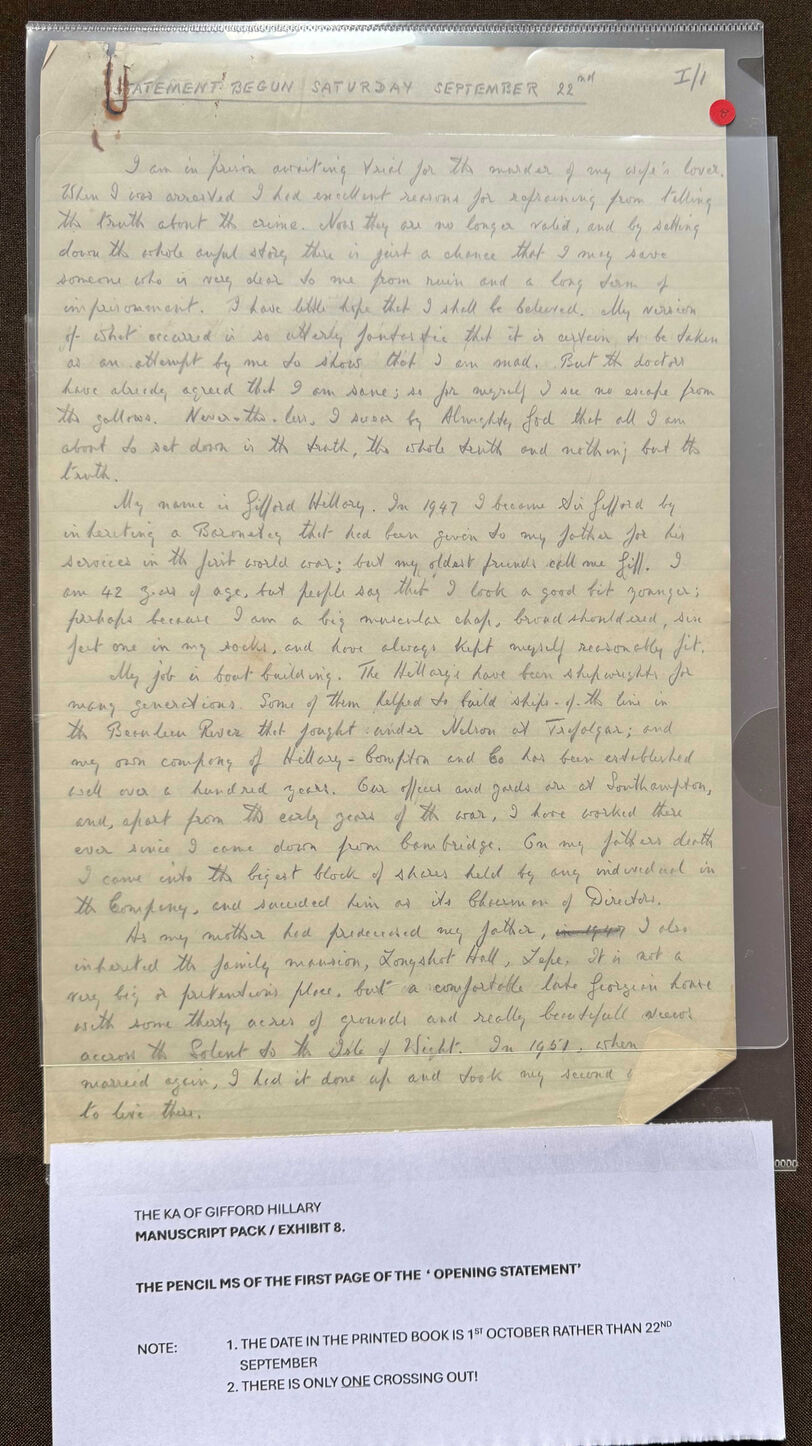 STATEMENT BEGUN SATURDAY SEPTEMBER 22nd I/1
8
I am in prison awaiting trial for the murder of my wife's lover.
When I was arrested I had excellent reasons for refraining from telling
the truth about the crime. Now they are no longer valid, and by setting
down the whole awful story there is just a chance that I may save
someone who is very dear to me from ruin and a long term of
imprisonment. I have little hope that I shall be believed. My version
of what occurred is so utterly fantastic that it is certain to be taken
as an attempt by me to show that I am mad. But the doctors
have already agreed that I am sane; so for myself I see no escape from
the gallows. Never-the-less, I swear by Almighty God that all I am
about to set down is the truth, the whole truth and nothing but the
truth.
My name is Gifford Hillary. In 1947 I became Sir Gifford by
inhereting a Baronetcy that had been given to my father for his
services in the first world war; but my oldest friends call me Giff. I
am 42 years of age, but people say that I look a good bit younger;
perhaps because I am a big muscular chap, broad shouldered, six
feet one in my socks, and have always kept myself reasonably fit.
My job is boat building. The Hillary's have been shipwrights for
many generations. Some of them helped to build ships-of-the line in
the Beaulieu River that fought under Nelson at Trafalgar; and
my own company of Hillary-Compton and Co has been established
well over a hundred years. Our offices and yards are at Southampton,
and, apart from the early years of the war, I have worked there
ever since I came down from Cambridge. On my fathers death
I came into the bigest block of shares held by any individual in
the Company, and succeded him as its Chairman of Directors.
As my mother had predeceased my father, in 1947 I also
inherited the family mansion, Longshot Hall, Lepe. It is not a
very big or pretentious place, but a comfortable late Georgian house
with some thirty acres of grounds and really beautifull views
accross the Solent to the Isle of Wight. In 1951, when
married again, I had it done up and took my second
to live there.
THE KA OF GIFFORD HILLARY
MANUSCRIPT PACK / EXHIBIT 8.
THE PENCIL MS OF THE FIRST PAGE OF THE ‘ OPENING STATEMENT’
NOTE: 1. THE DATE IN THE PRINTED BOOK IS 1ST OCTOBER RATHER THAN 22ND
SEPTEMBER
2. THERE IS ONLY ONE CROSSING OUT!